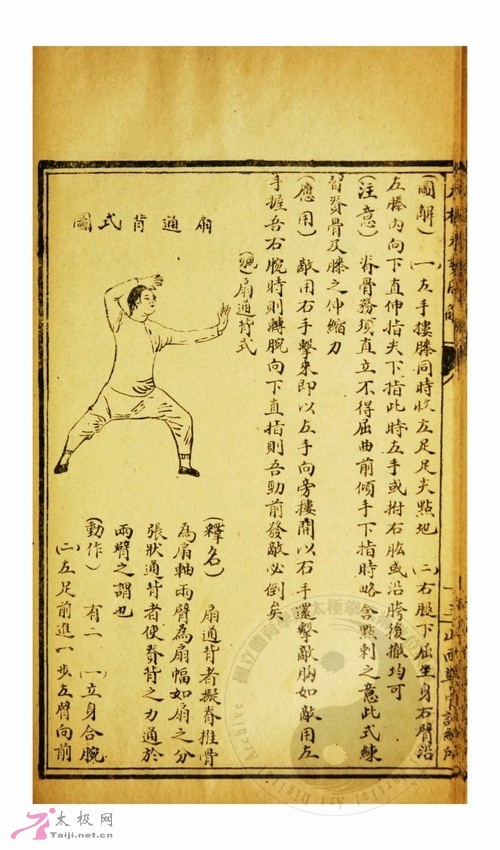 (圖解) (一)左手摟膝同時收左足足尖點地 (二)右腿下屈坐身右臂沿
左膝內向下直伸指尖下指此時左手或拊右肱或沿胯後撤均可
(注意) 脊骨務須直立不得屈曲前傾手下指時略含點刺之意此式練
習脊骨及膝之伸縮力
(應用) 敵用右手擊來即以左手向旁摟開以右手還擊敵胸如敵用左
手握吾右腕時則轉腕向下直指則吾勁前發敵必倒矣
扇通背式
扇通背式圖
(釋名) 扇通背者擬脊椎骨
為扇軸兩臂為扇幅如扇之分
張狀通背者使脊背之力通於
兩臂之謂也
(動作) 有二 (一)立身合腕
(二)左足前進一步左臂向前
太极网
Taiji.net.cn